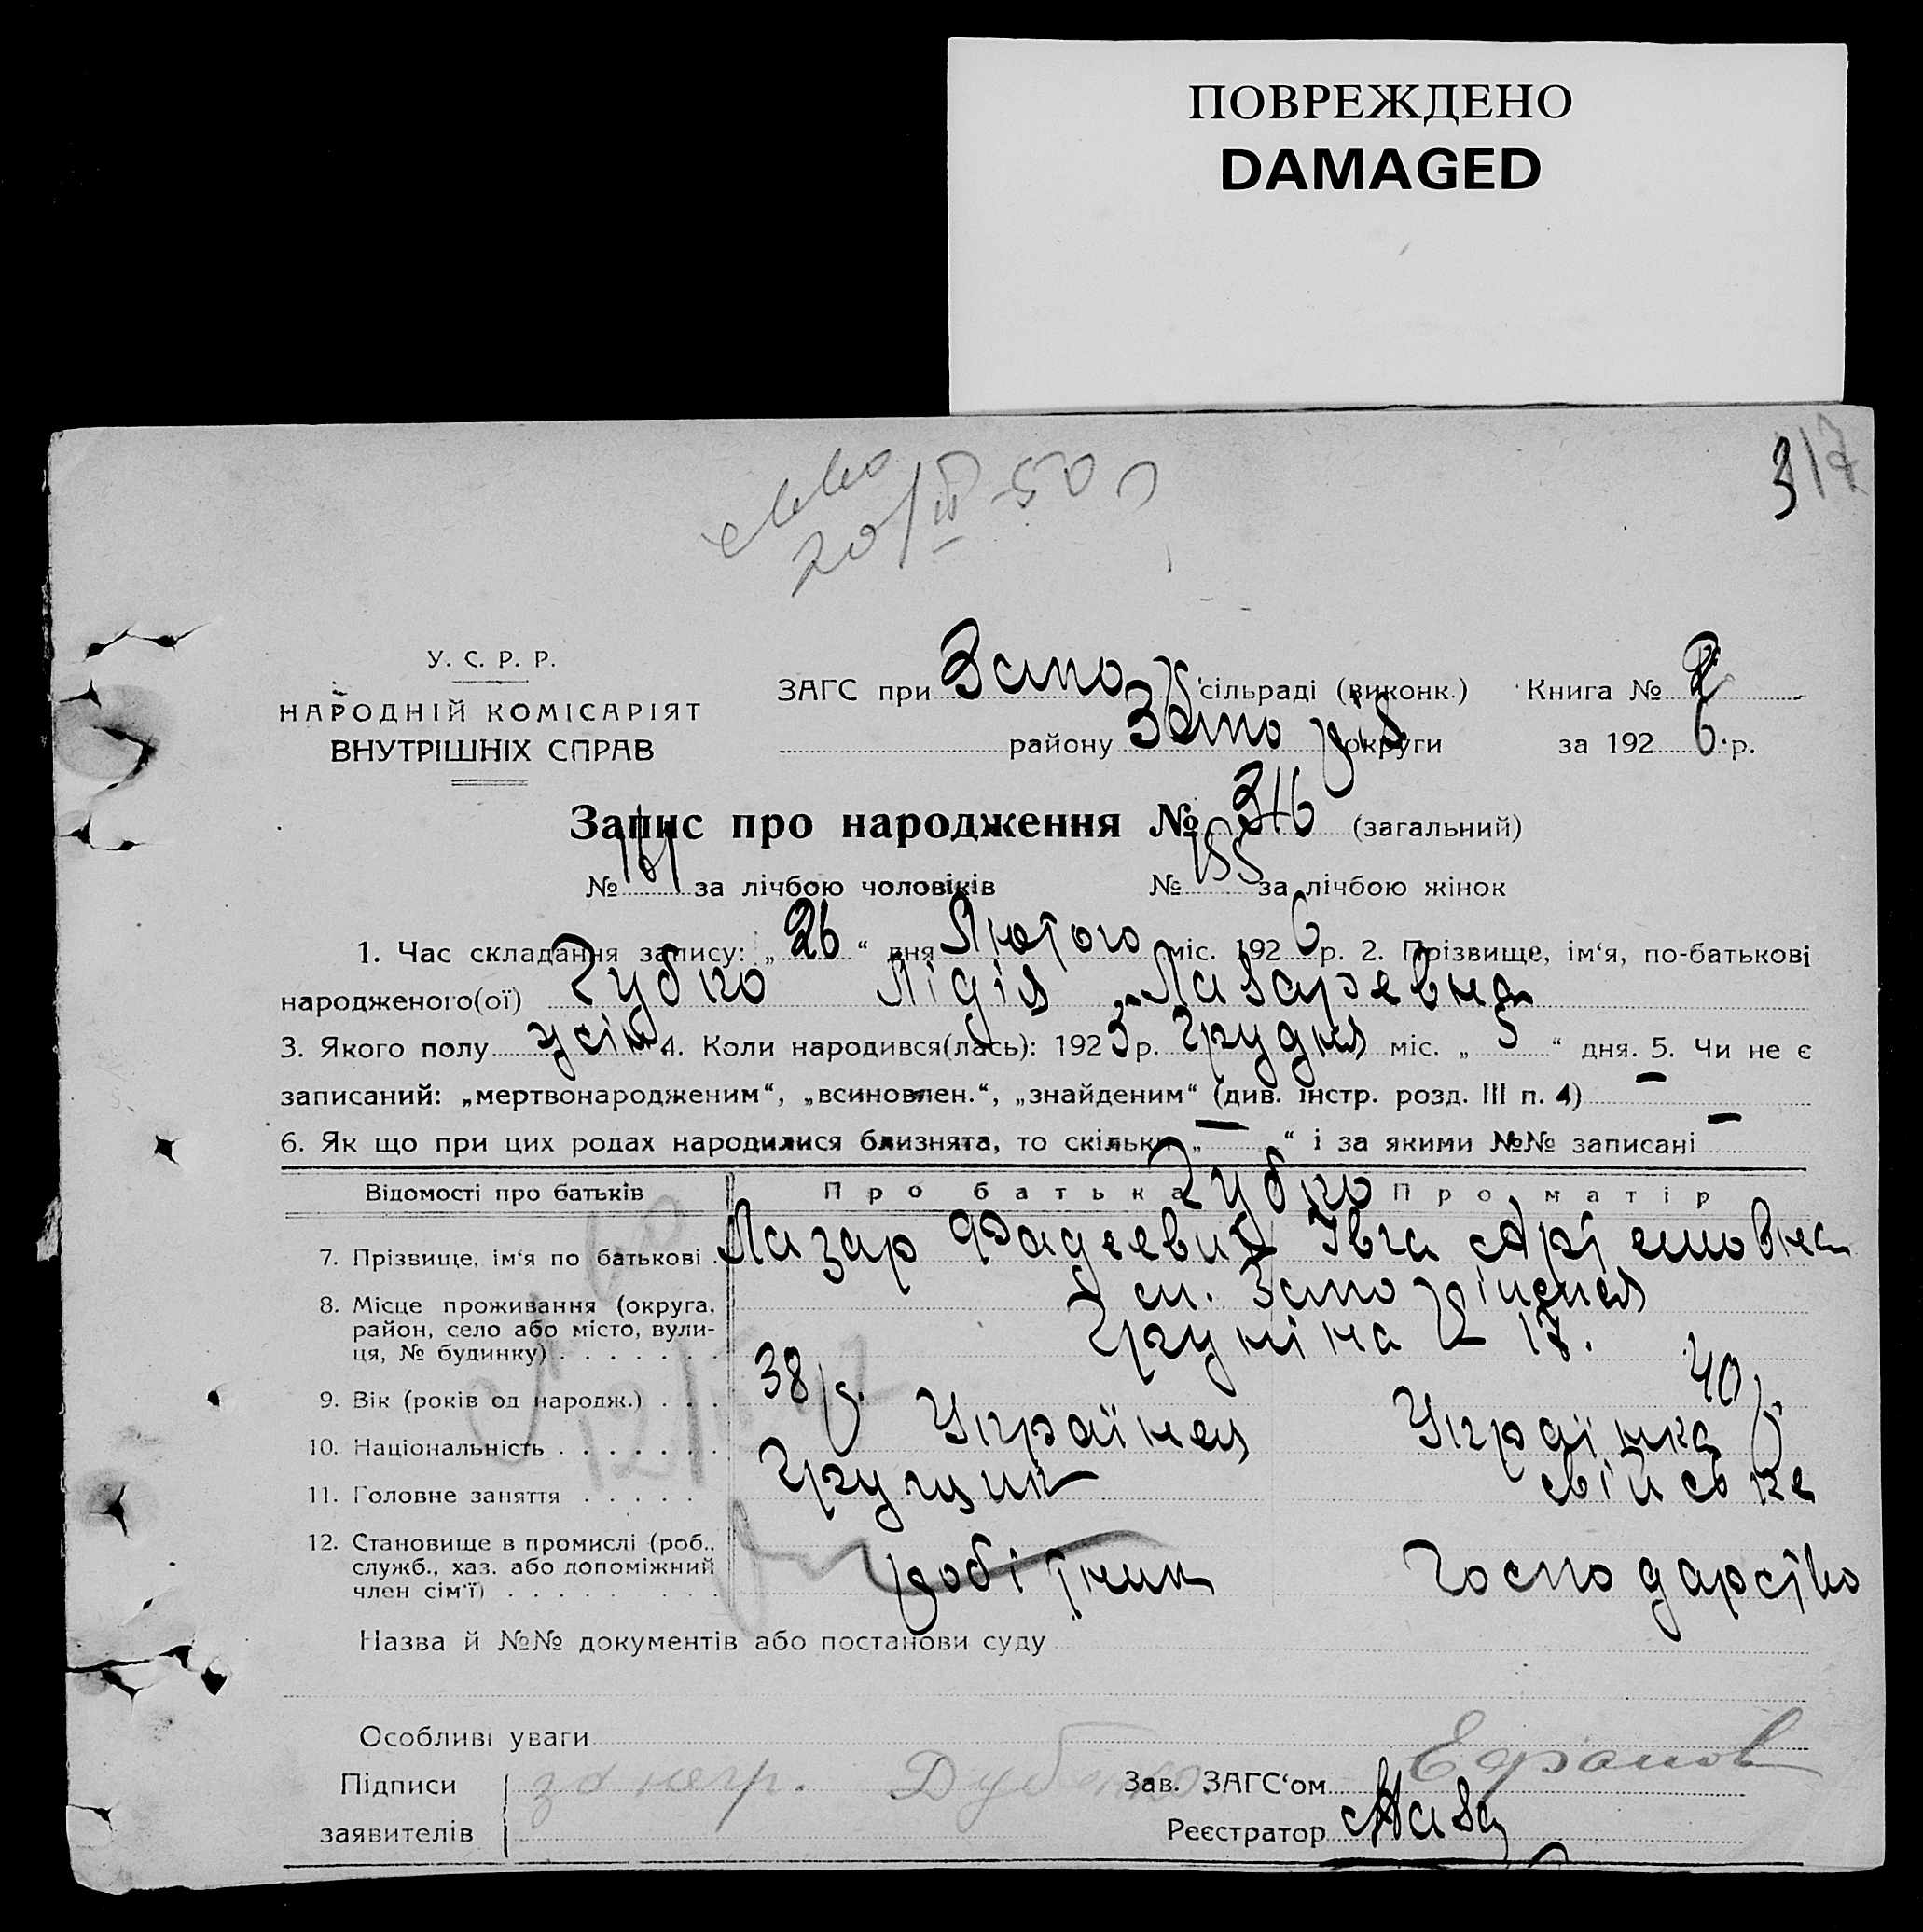 ПОВРЕЖДЕНО
DAMAGED
317
20/III-50
У. С. Р. Р.
НАРОДНІЙ КОМІСАРІЯТ
ВНУТРІШНІХ СПРАВ
ЗАГС при Запо сільраді (виконк.) Книга № 2
району Запо округи за 1926 р.
Запис про народження № 316 (загальний)
№ 161 за лічбою чоловіків № 155 за лічбою жінок
1. Час складання запису: „ 26 “ дня Лютого міс. 1926 р. 2. Прізвище, ім‘я, по-батькові
народженого(ої) Зубко Лідія Лазарєвна
3. Якого полу жін. 4. Коли народився(лась): 1923 р. Грудня міс. „ 5 “ дня. 5. Чи не є
записаний: „мертвонародженим“, „всиновлен.“, „знайденим“ (див. інстр. розд. III п. 4) —
6. Як що при цих родах народилися близнята, то скільки „ — “ і за якими №№ записані —
Відомості про батьків Про батька Зубко Про матір
7. Прізвище, ім‘я по батькові . Лазар Фадеевич Івга
8. Місце проживання (округа, район, село або місто, вули-ця, № будинку) . . . . . . . м. Запоріжжя
17.
9. Вік (років од народж.) . . . 38 р. 40 р.
10. Національність . . . . . . . Українец Українка
11. Головне заняття . . . . . Грущик свійське
12. Становище в промислі (роб., служб., хаз. або допоміжний член сім‘ї) . . . . . . . . робітник господарство
Назва й №№ документів або постанови суду
Особливі уваги
Підписи заявителів за негр. Зав. ЗАГС‘ом
Реєстратор